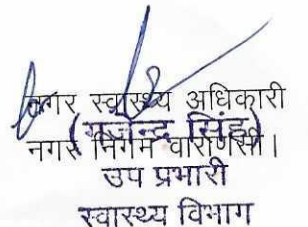 नगर स्वास्थ्य अधिकारी
(गजेन्द्र सिंह)
नगर निगम वाराणसी।
उप प्रभारी
स्वास्थ्य विभाग